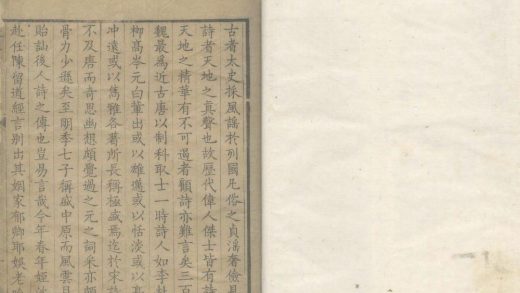 古者太史採風謠於列國民俗之貞淫奢儉具
詩者天地之真聲也故歷代偉人傑士皆有詩
天地之精華有不可遏者顧詩亦難言矣三百
魏最為近古唐以制科取士一時詩人如李杜
柳高岑元白輩出或以雄邁或以恬淡或以高
冲遠或以雋雅各著所長稱極盛焉迄於宋
不及唐而奇思幽想頗覺過之元之詞采亦
骨力少遜矣至明李七子稱盛中原而風雲月
貽訕後人詩之傳也豈易言哉今年春年姪
赴任陳留道經言別出其姻家郁卿耶娛老